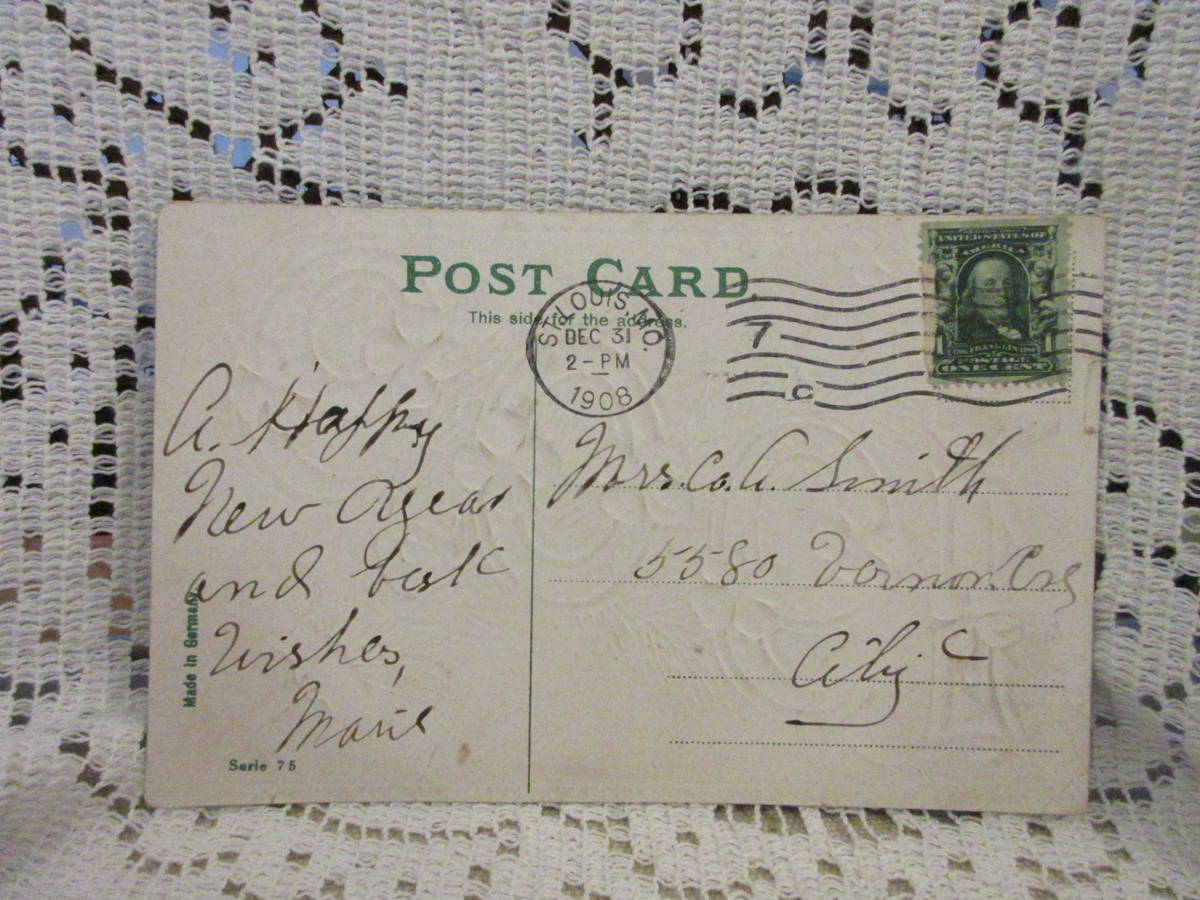 POST CARD
This side for the address.
ST. LOUIS, MO.
DEC 31
2-PM
1908
7
C
UNITED STATES OF
AMERICA
FRANKLIN
POSTAGE
ONE CENT
A Happy
New Year
and best
Wishes,
Marie
Made in Germany
Serie 75
Mrs. C. A. Smith
5580 Vernon Ave
City